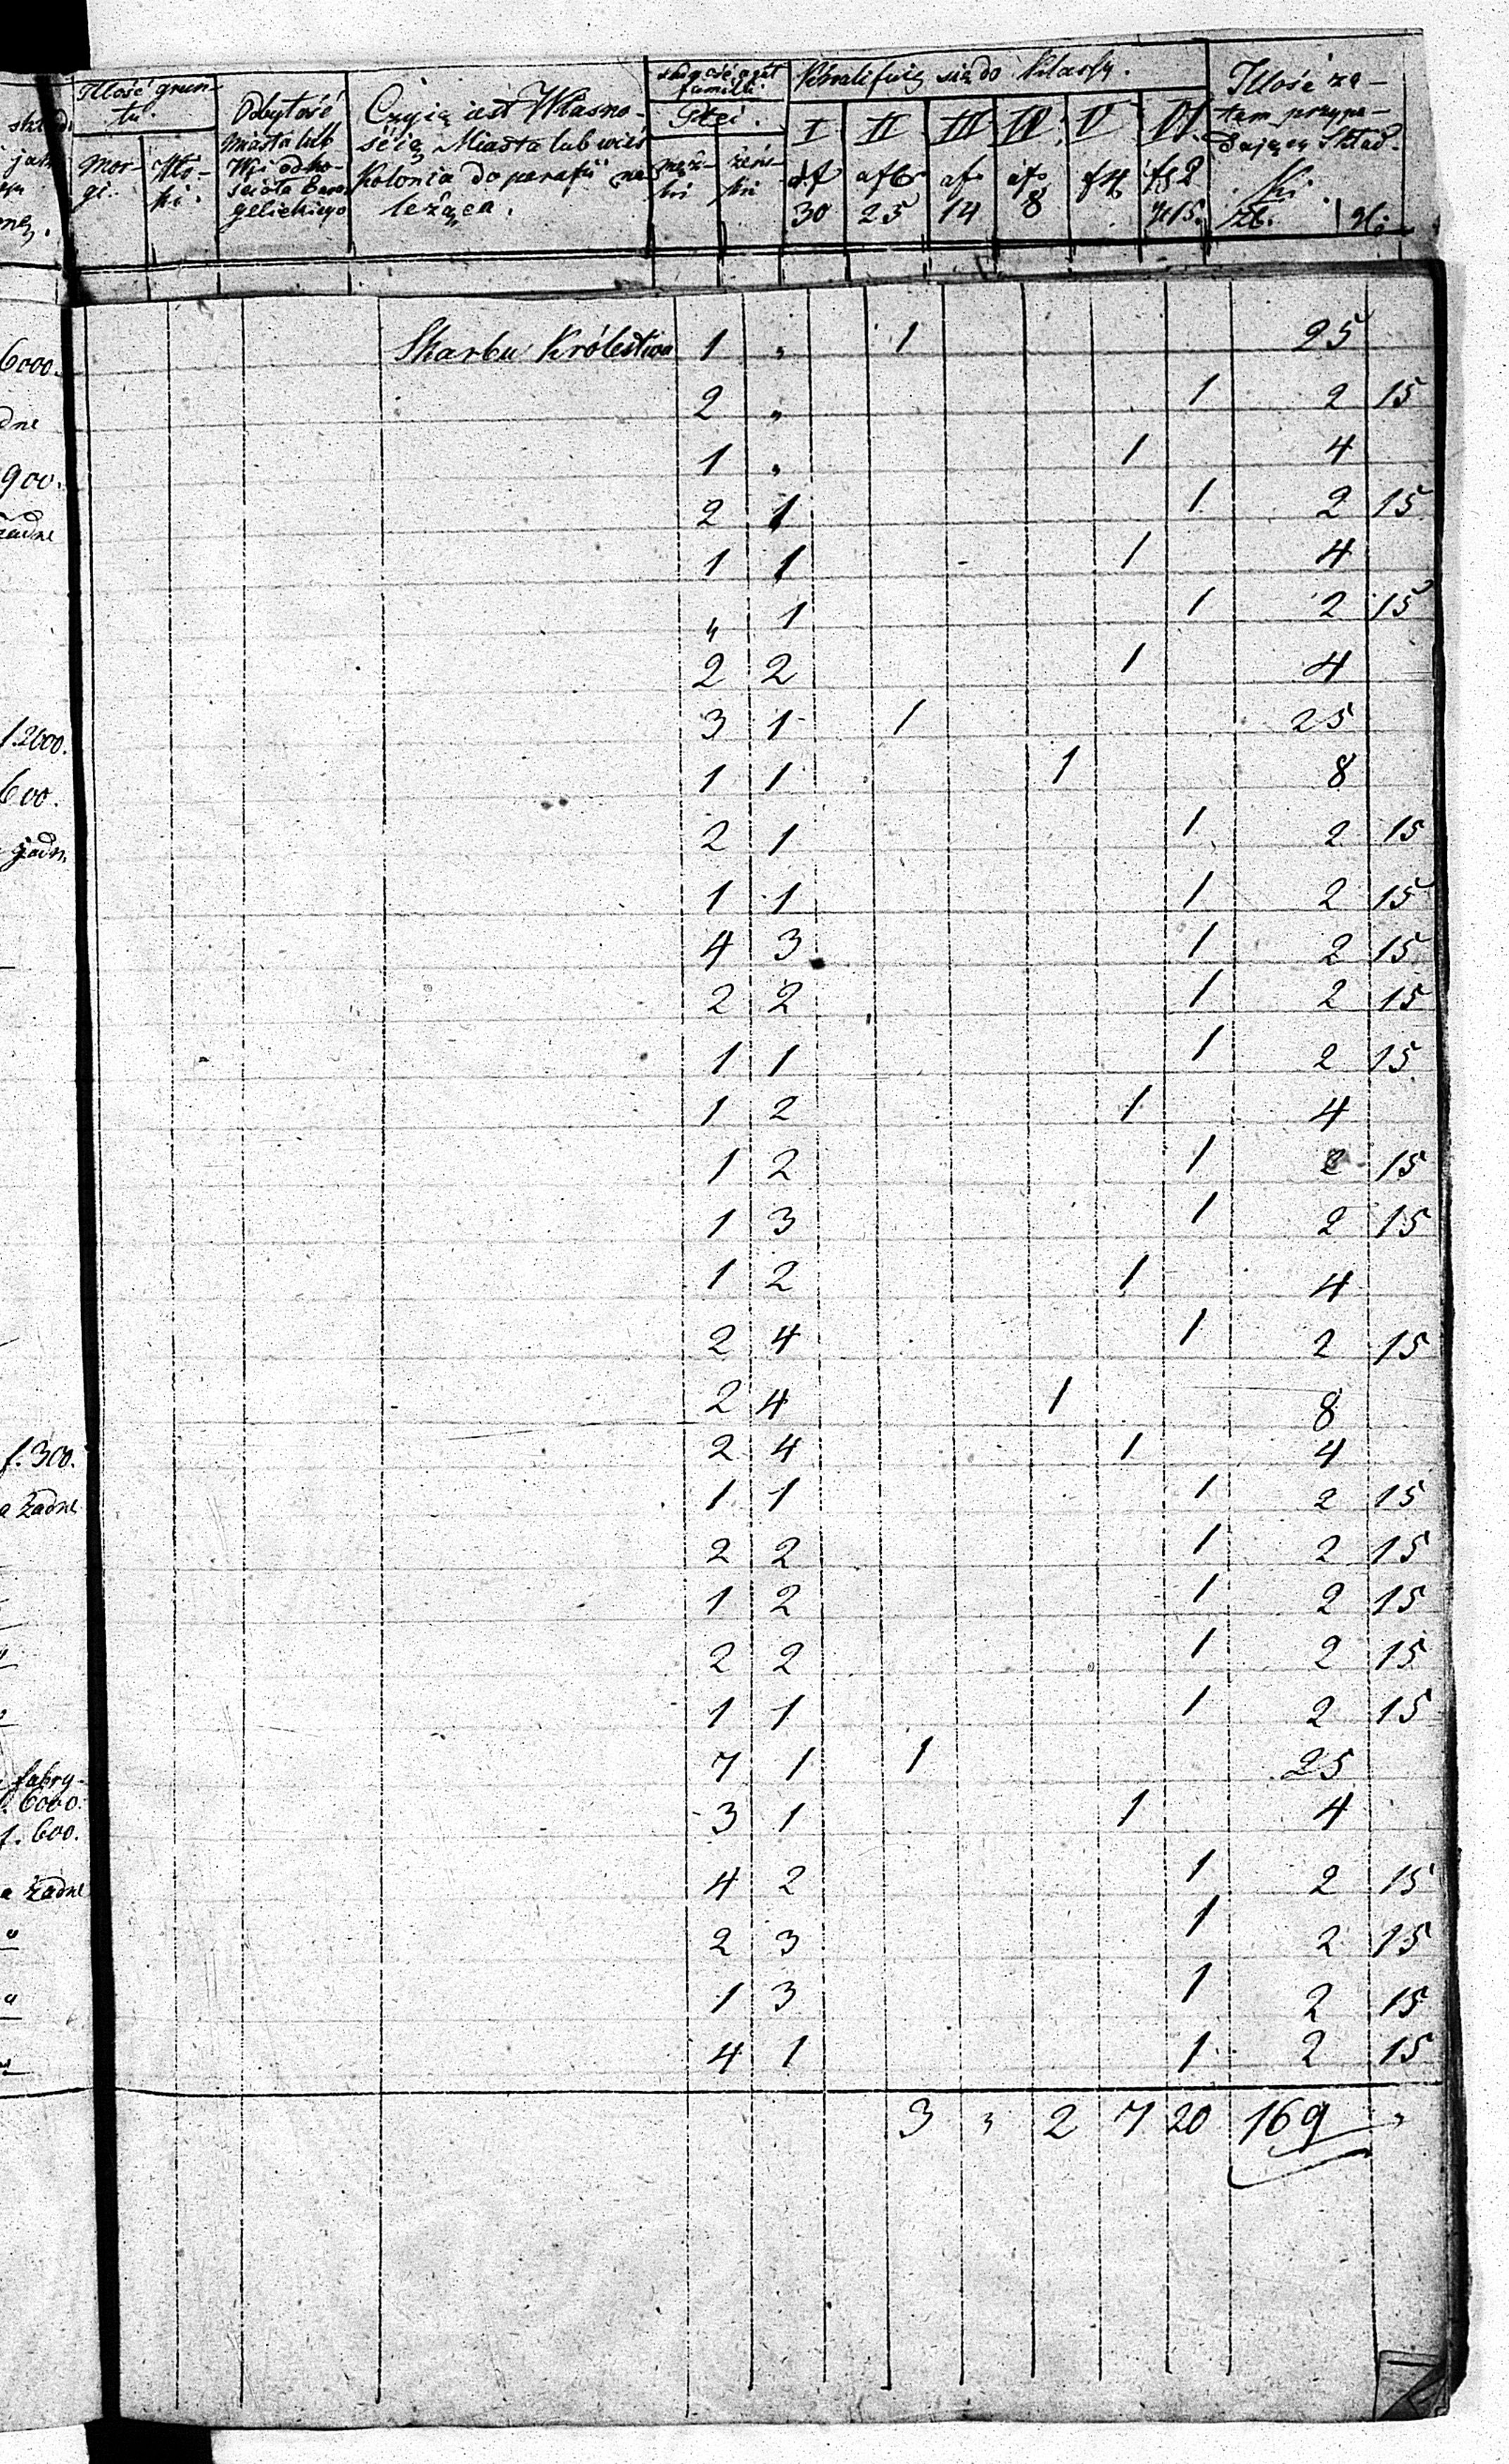 Ilość grun-
tu.
Mor-
gi.
Odbytość
Miasta lub
Wsi do ko-
ścioła Ewan
gelickiego
Czyią iest Własno-
ścią Miasta lub wieś
Kolonia do parafii na
leżąca.
familii.
Płci.
męz-
ki
żeńs-
ki
Kwalifuią się do Klassy.
I
30
II
25
III
14
IV
8
V
f 4
VI
f 2
gr 15.
Ilość za-
tem przypa-
dającej Skład-
ki.
Zł. gr.
6000.
900.
żadne
1.2000.
600.
f. 300.
a żadne
fabry-
6000.
f. 600.
a żadne
Skarbu Królestwa 1 " 1 25
2 " 1 2 15
1 " 1 4
2 1 1 2 15
1 1 1 4
" 1 1 2 15
2 2 1 4
3 1 1 25
1 1 1 8
2 1 1 2 15
1 1 1 2 15
4 3 1 2 15
2 2 1 2 15
1 1 1 2 15
1 2 1 4
1 2 1 2 15
1 3 1 2 15
1 2 1 4
2 4 1 2 15
2 4 1 8
2 4 1 4
1 1 1 2 15
2 2 1 2 15
1 2 1 2 15
2 2 1 2 15
1 1 1 2 15
7 1 1 25
3 1 1 4
4 2 1 2 15
2 3 1 2 15
1 3 1 2 15
4 1 1 2 15
3 " 2 7 20 169 "